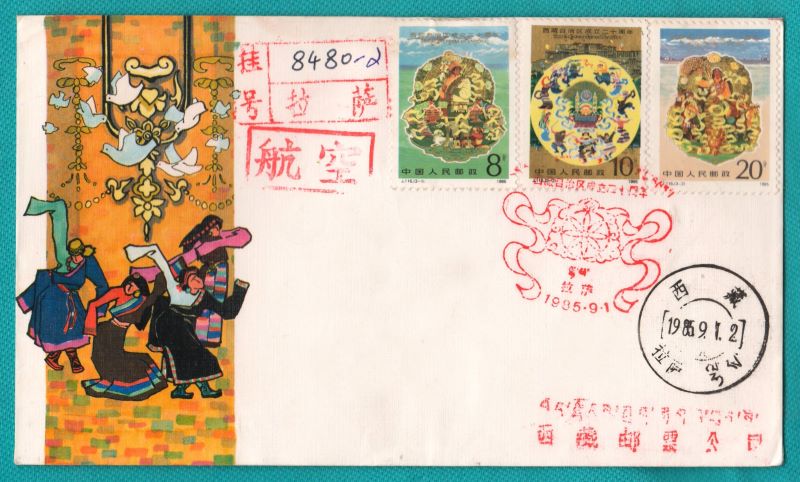 挂号
8480-2
拉萨
航空
西藏自治区成立二十周年
8分
中国人民邮政
J.116.(3-1) 1985
西藏自治区成立二十周年
10分
中国人民邮政
1985
20分
中国人民邮政
J.116.(3-3) 1985
西藏自治区成立二十周年
拉萨
1985.9.1
西藏
1985.9.1.2
拉萨
西藏邮票公司